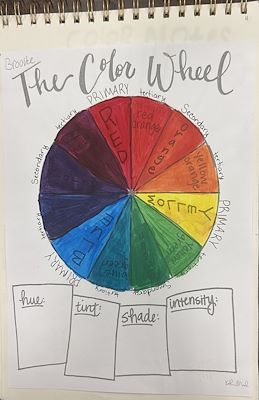 Brooke
The Color Wheel
PRIMARY
tertiary
Secondary
tertiary
PRIMARY
tertiary
Secondary
tertiary
PRIMARY
tertiary
Secondary
tertiary
RED
red
orange
ORANGE
yellow
orange
YELLOW
yellow
green
blue
green
BLUE
hue:
tint:
shade:
intensity: